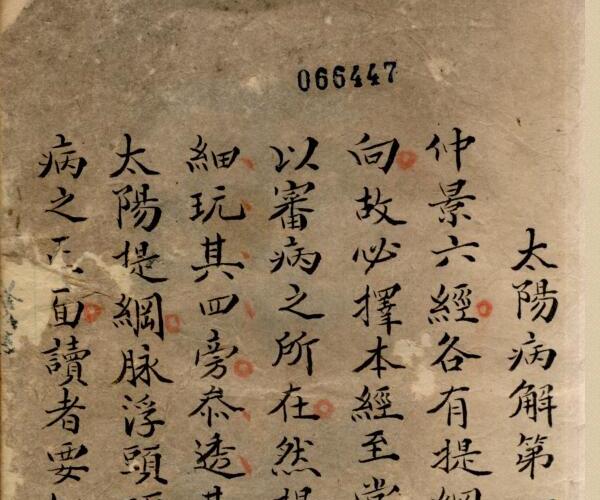 066447
太陽病解第
仲景六經各有提綱
向故必擇本經至當
以審病之所在然提
細玩其四旁叅透其
太陽提綱脉浮頭
病之正面讀者要